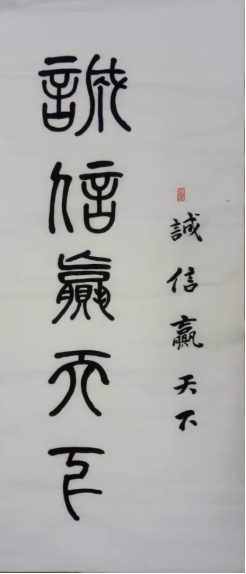 誠信贏天下
誠信贏天下